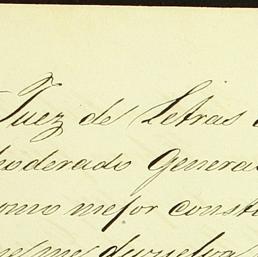 Juez de Letras
poderado General
como mejor consti
que me devuelva